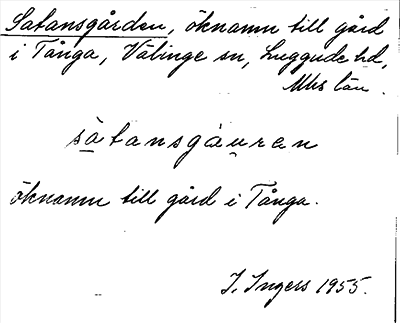 Satansgården, öknamn till gård
i Tånga, Välinge sn, Luggude hd,
Mhs län.
sàtansgåuren
öknamn till gård i Tånga.
I. Ingers 1955.